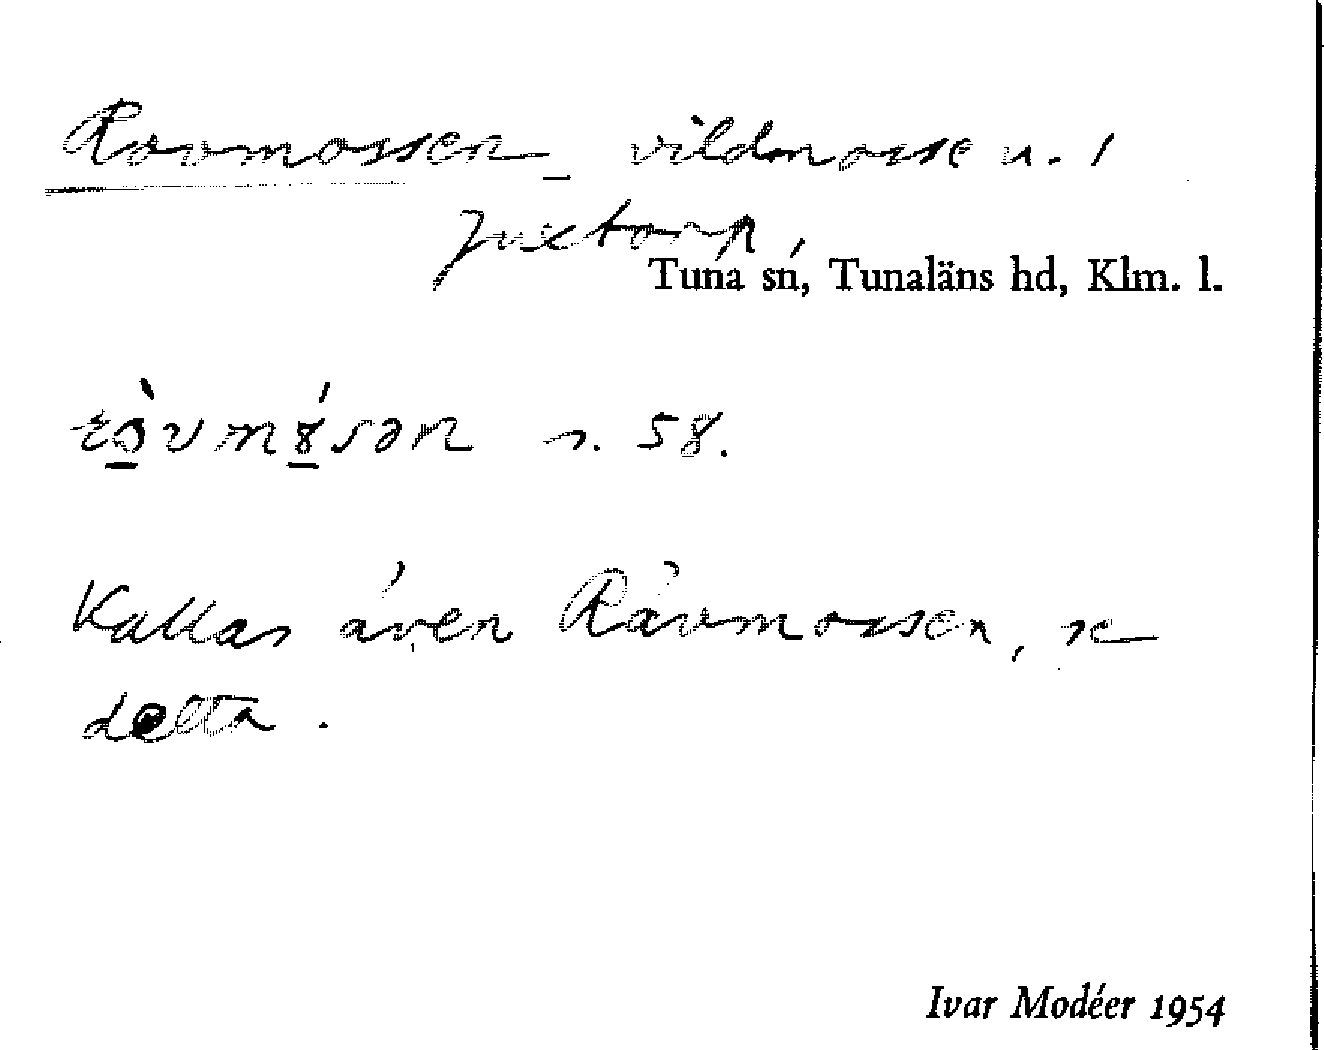 Rovmossen vildmosse u. 1
Juxtorp,
Tuna sn, Tunaläns hd, Klm. l.
s. 58.
Kallas även Råvmossen, se
detta.
Ivar Modéer 1954